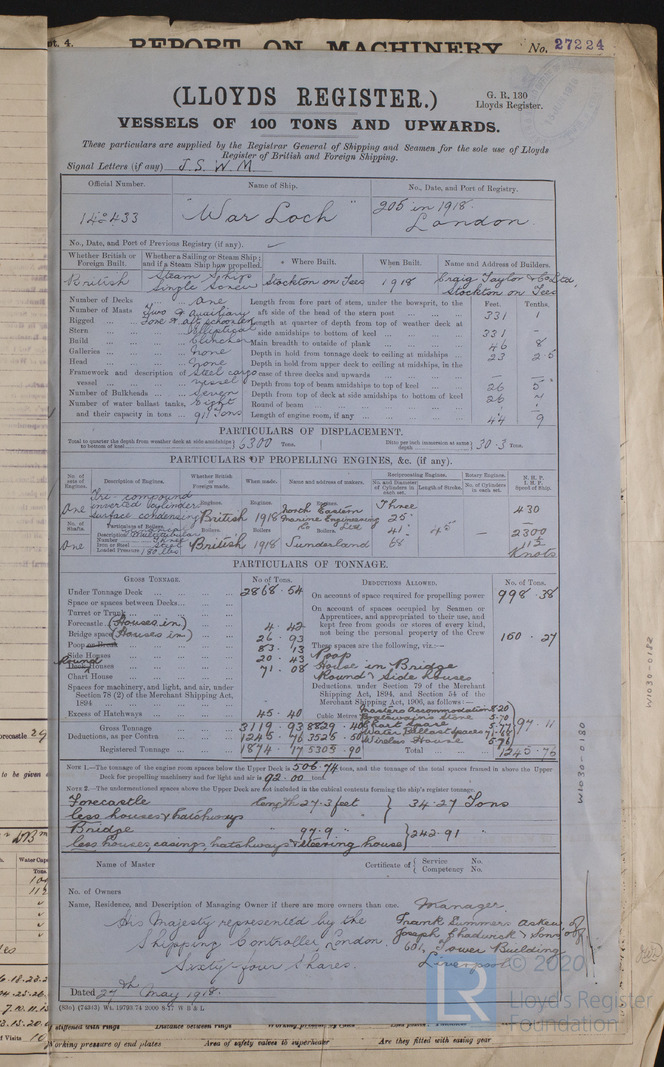 pt. 4.
REPORT ON MACHINERY
No. 27224
(LLOYDS REGISTER.)
G. R. 130
Lloyds Register.
VESSELS OF 100 TONS AND UPWARDS.
These particulars are supplied by the Registrar General of Shipping and Seamen for the sole use of Lloyds
Register of British and Foreign Shipping.
Signal Letters (if any) J.S.W.M.
Official Number. Name of Ship. No., Date, and Port of Registry.
142433 "War Loch" 205 in 1918. London
No., Date, and Port of Previous Registry (if any).
Whether British or Foreign Built. Whether a Sailing or Steam Ship; and if a Steam Ship how propelled. Where Built. When Built. Name and Address of Builders.
British Steam Ship Single Screw Stockton on Tees 1918 Craig Taylor & Co Ltd, Stockton on Tees
Number of Decks One
Number of Masts Two & auxiliary
Rigged Fore & aft schooner
Stern Elliptical
Build Clincher
Galleries None
Head None
Framework and description of vessel Steel cargo vessel
Number of Bulkheads Seven
Number of water ballast tanks, Eight
and their capacity in tons 911 tons
Feet. Tenths.
Length from fore part of stem, under the bowsprit, to the aft side of the head of the stern post 331 1
Length at quarter of depth from top of weather deck at side amidships to bottom of keel 331 –
Main breadth to outside of plank 46 8
Depth in hold from tonnage deck to ceiling at midships 23 2.5
Depth in hold from upper deck to ceiling at midships, in the case of three decks and upwards – –
Depth from top of beam amidships to top of keel 26 5
Depth from top of deck at side amidships to bottom of keel 26
Round of beam
Length of engine room, if any 44 9
PARTICULARS OF DISPLACEMENT.
Total to quarter the depth from weather deck at side amidships to bottom of keel 6300 Tons. Ditto per inch immersion at same depth 30.3 Tons.
PARTICULARS OF PROPELLING ENGINES, &c. (if any).
No. of sets of Engines. Description of Engines. Whether British or Foreign made. When made. Name and address of makers. Reciprocating Engines. Rotary Engines. N. H. P. I. H. P. Speed of Ship.
No. and Diameter of Cylinders in each set. Length of Stroke. No. of Cylinders in each set.
One Tri-compound inverted cylinder surface condensing
Engines. British 1918 North Eastern Marine Engineering Co Ltd
Three 25" 41" 68" 45" – 430 2300 11½ Knots
No. of Shafts. Particulars of Boilers.
One Description Multitubular
Number Three
Iron or Steel Steel
Loaded Pressure 180 lbs
Boilers. British 1918 Sunderland
PARTICULARS OF TONNAGE.
GROSS TONNAGE. No. of Tons.
Under Tonnage Deck 2868.54
Space or spaces between Decks
Turret or Trunk
Forecastle (Houses in) 4.42
Bridge space (Houses in) 26.93
Poop or Break 83.13
Side Houses 20.43
Deck Houses Round 71.08
Chart House
Spaces for machinery, and light, and air, under Section 78 (2) of the Merchant Shipping Act, 1894
Excess of Hatchways 45.40 Cubic Metres
Gross Tonnage 3119.93 8829.40
Deductions, as per Contra 1245.76 3525.50
Registered Tonnage 1874.17 5303.90
DEDUCTIONS ALLOWED. No. of Tons.
On account of space required for propelling power 998.38
On account of spaces occupied by Seamen or Apprentices, and appropriated to their use, and kept free from goods or stores of every kind, not being the personal property of the Crew 150.27
These spaces are the following, viz.:—
Poop
House in Bridge
Round & Side houses
Deductions, under Section 79 of the Merchant Shipping Act, 1894, and Section 54 of the Merchant Shipping Act, 1906, as follows:—
Masters Accommodation 8.20
Boatswains Store 5.70
Chart Space
Water Ballast Spaces
Wireless House 5.71
97.11
Total 1245.76
NOTE 1.—The tonnage of the engine room spaces below the Upper Deck is 506.74 tons, and the tonnage of the total spaces framed in above the Upper Deck for propelling machinery and for light and air is 92.00 tons.
NOTE 2.—The undermentioned spaces above the Upper Deck are not included in the cubical contents forming the ship's register tonnage.
Forecastle length 27.3 feet } 34.27 Tons
less houses & hatchways
Bridge " 97.9 " } 242.91 "
less houses, casings, hatchways & steering house
Name of Master Certificate of { Service No. Competency No.
No. of Owners
Name, Residence, and Description of Managing Owner if there are more owners than one.
His Majesty represented by the
Shipping Controller, London.
Sixty-four Shares.
Manager
Frank Summers Askew of
Joseph Chadwick & Sons of
60½ Tower Building
Liverpool
Dated 27th May 1918.
W1030-0182
W1030-0180
© 2020
Lloyd's Register
Foundation
LR
stiffened with rings Distance between rings
Working pressure of end plates Area of safety valves to superheater Are they fitted with easing gear